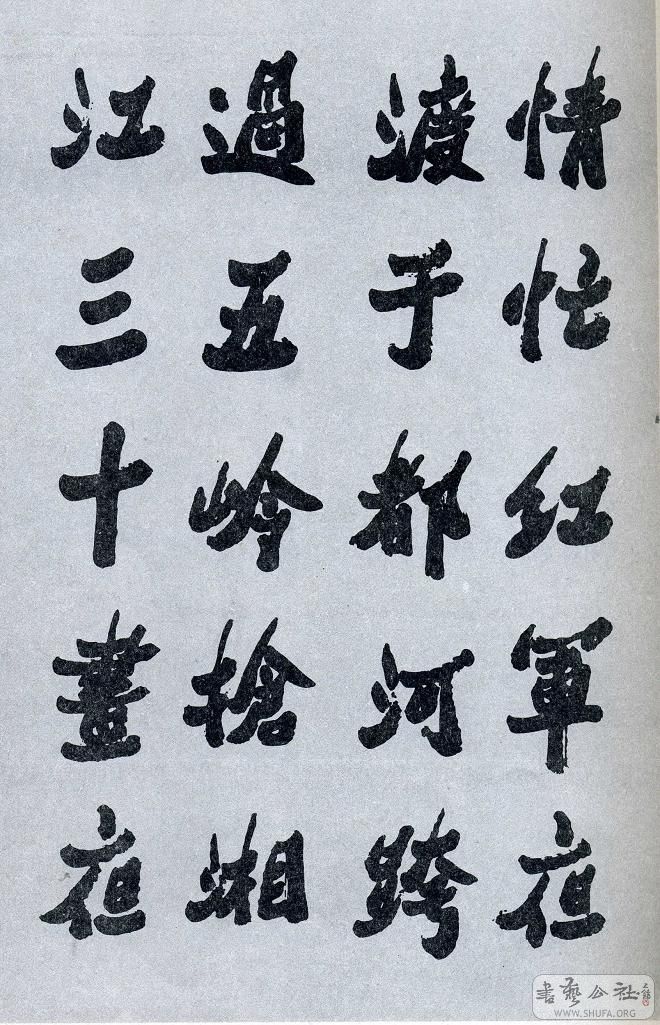 情忙紅軍夜
渡于都河跨
過五岭搶湘
江三十晝夜
書藝公社
WWW.SHUFA.ORG